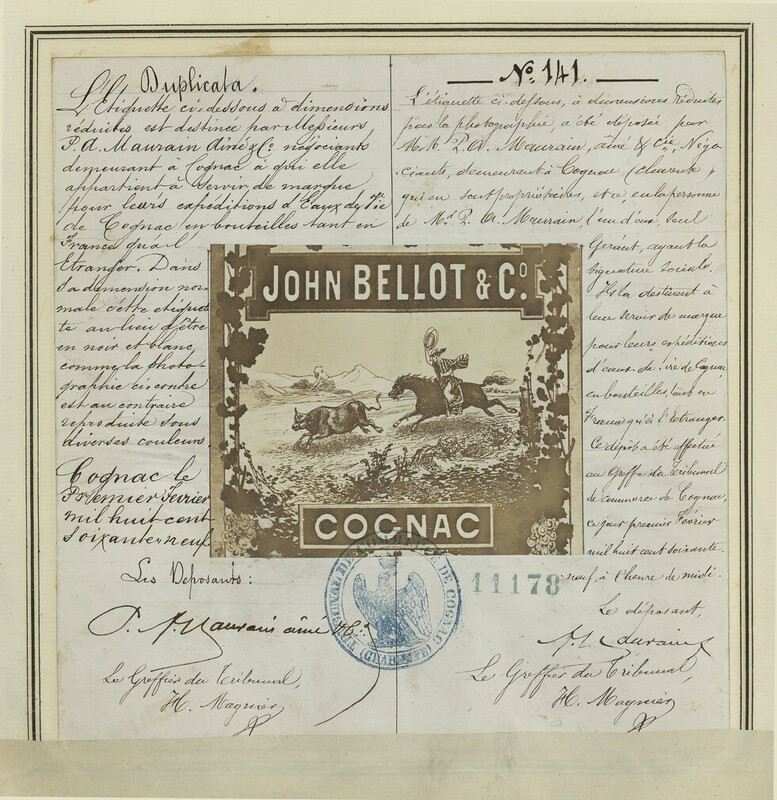 Duplicata.
L'Etiquette ci-dessous à dimensions
réduites est destinée par Messieurs
P. A. Maurain aîné & Cº. négociants
demeurant à Cognac à qui elle
appartient à servir de marque
pour leurs expéditions d'Eaux de Vie
de Cognac en bouteilles tant en
France qu'à l'
Etranger. Dans
sa dimension nor-
male cette etiquet-
te au lieu d'être
en noir et blanc
comme la photo-
graphie ci-contre
est au contraire
reproduite sous
diverses couleurs
Cognac le
Premier Fevrier
mil huit cent
soixante neuf
Les Deposants:
P. A. Maurain aîné & Cº
Le Greffier du Tribunal,
H. Magnier
Nº 141.
L'étiquette ci-dessous, à dimensions réduites
pour la photographie, a été déposée, par
M.M. P. A. Maurain, aîné & Cie, Négo-
ciants, demeurant à Cognac (Charente)
qui en sont propriétaires, et ce, en la personne
de Mr P. A. Maurain, l'un d'eux, seul
Gérant, ayant la
signature sociale.
Ils la destinent à
leur servir de marque
pour leurs expéditions
d'eaux de vie de Cognac
en bouteilles, tant en
France qu'à l'Etranger.
Ce dépôt a été effectué
au Greffe du Tribunal
de commerce de Cognac,
ce jour premier Février
mil huit cent soixante-
neuf, à l'heure de midi.
Le déposant,
A. Maurain
Le Greffier du Tribunal,
H. Magnier
JOHN BELLOT & Cº.
COGNAC
TRIBUNAL DE COMMERCE DE COGNAC
(CHARENTE)
11178